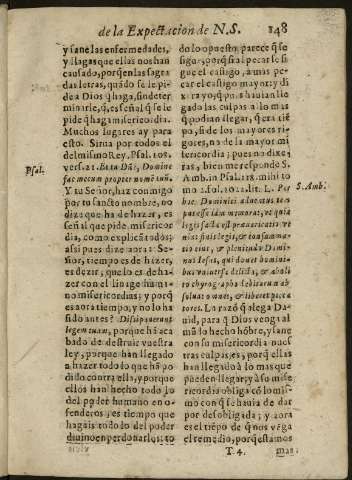 de la Expectacion de N.S. 148
y sane las enfermedades,
y llagas que ellas nos han
causado, porq̃ en las sagra
das letras, quādo se le pi-
de a Dios q̃ haga, sin deter
minarle, q̃, es señal q̃ se le
pide q̃ haga misericordia.
Muchos lugares ay para
esto. Sirva por todos el
del mismo Rey, Psal. 108.
vers. 21. Et tu Dñe, Domine
fac mecum propter nomē tuũ.
Y tu Señor, haz conmigo
por tu sancto nombre, no
dize que ha de hazer, es
señal que pide misericor
dia, como explicādos;
assi pues dize aora: Se-
ñor, tiempo es de hazer,
es dezir, que lo es de ha-
zer con el linage huma-
no misericordias; y porq̃
es aora tiempo, y no lo ha
sido antes? Dissipaverunt
legem tuam, porque hā aca
bado de destruir vuestra
ley, porque han llegado
a hazer todo lo que hā po
dido contra ella, y porque
ellos han hecho todo lo
del poder humano en o-
fenderos; es tiempo que
hagais todo lo del poder
divino en perdonarlos: to
Psal.
do lo opuesto parece q̃ se
sigue, porq̃ si al pecar se si
gue el castigo, a mas pe-
car el castigo mayor; y di
xera yo, q̃ pues hauian lle
gado las culpas a lo mas
q̃ podian llegar, q̃ era tiē
po, si de los mayores ri-
gores, no de la mayor mi
sericordia; pues no dixe-
rais, bien me responde S.
Amb. in Psal. 118. mihi to
mo 2. fol. 1022. lit. L. Per
hoc Dominici aduentus tem
pus esse iam memorat; vt quia
legis facta est prævaricatio ve
niat finis legis, & consumma-
tio eius, & plenitudo Domi-
nus Iesus, qui donet homini-
bus vniuersa delicta, & aboli
to chyrographo debitarum ab
soluat omnes, & liberet pecca
tores. La razō q̃ alega Da-
uid, para q̃ Dios venga al
mūdo hecho hōbre, y sane
con su misericordia nues-
tras culpas, es, porq̃ ellas
han llegado a lo mas que
pueden llegar; y a su mise
ricordia obliga cō lo mis-
mo con q̃ se hauia de dar
por desobligada; y aora
es el tiēpo de q̃ nos vēga
el remedio, porq̃ estamos
S. Amb.
T. 4. mas: